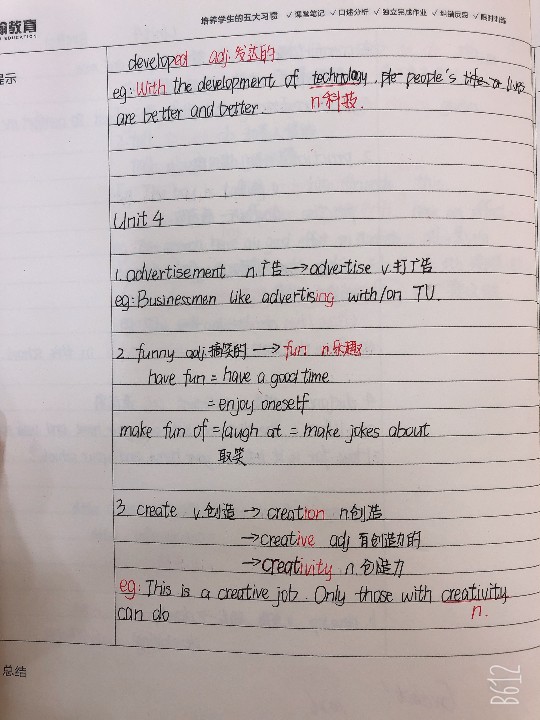 翰教育
EDUCATION
培养学生的五大习惯 ✓课堂笔记 ✓口述分析 ✓独立完成作业 ✓纠错反思 ✓限时训练
提示
developed adj.发达的
eg: With the development of technology, people's lives
are better and better. n.科技.
Unit 4
1. advertisement n.广告 → advertise v.打广告
eg: Businessmen like advertising with/on TV.
2. funny adj.搞笑的 → fun n.乐趣
have fun = have a good time
= enjoy oneself
make fun of = laugh at = make jokes about
取笑
3. create v.创造 → creation n.创造
→ creative adj 有创造力的
→ creativity n.创造力
eg: This is a creative job. Only those with creativity
can do n.
总结
B612